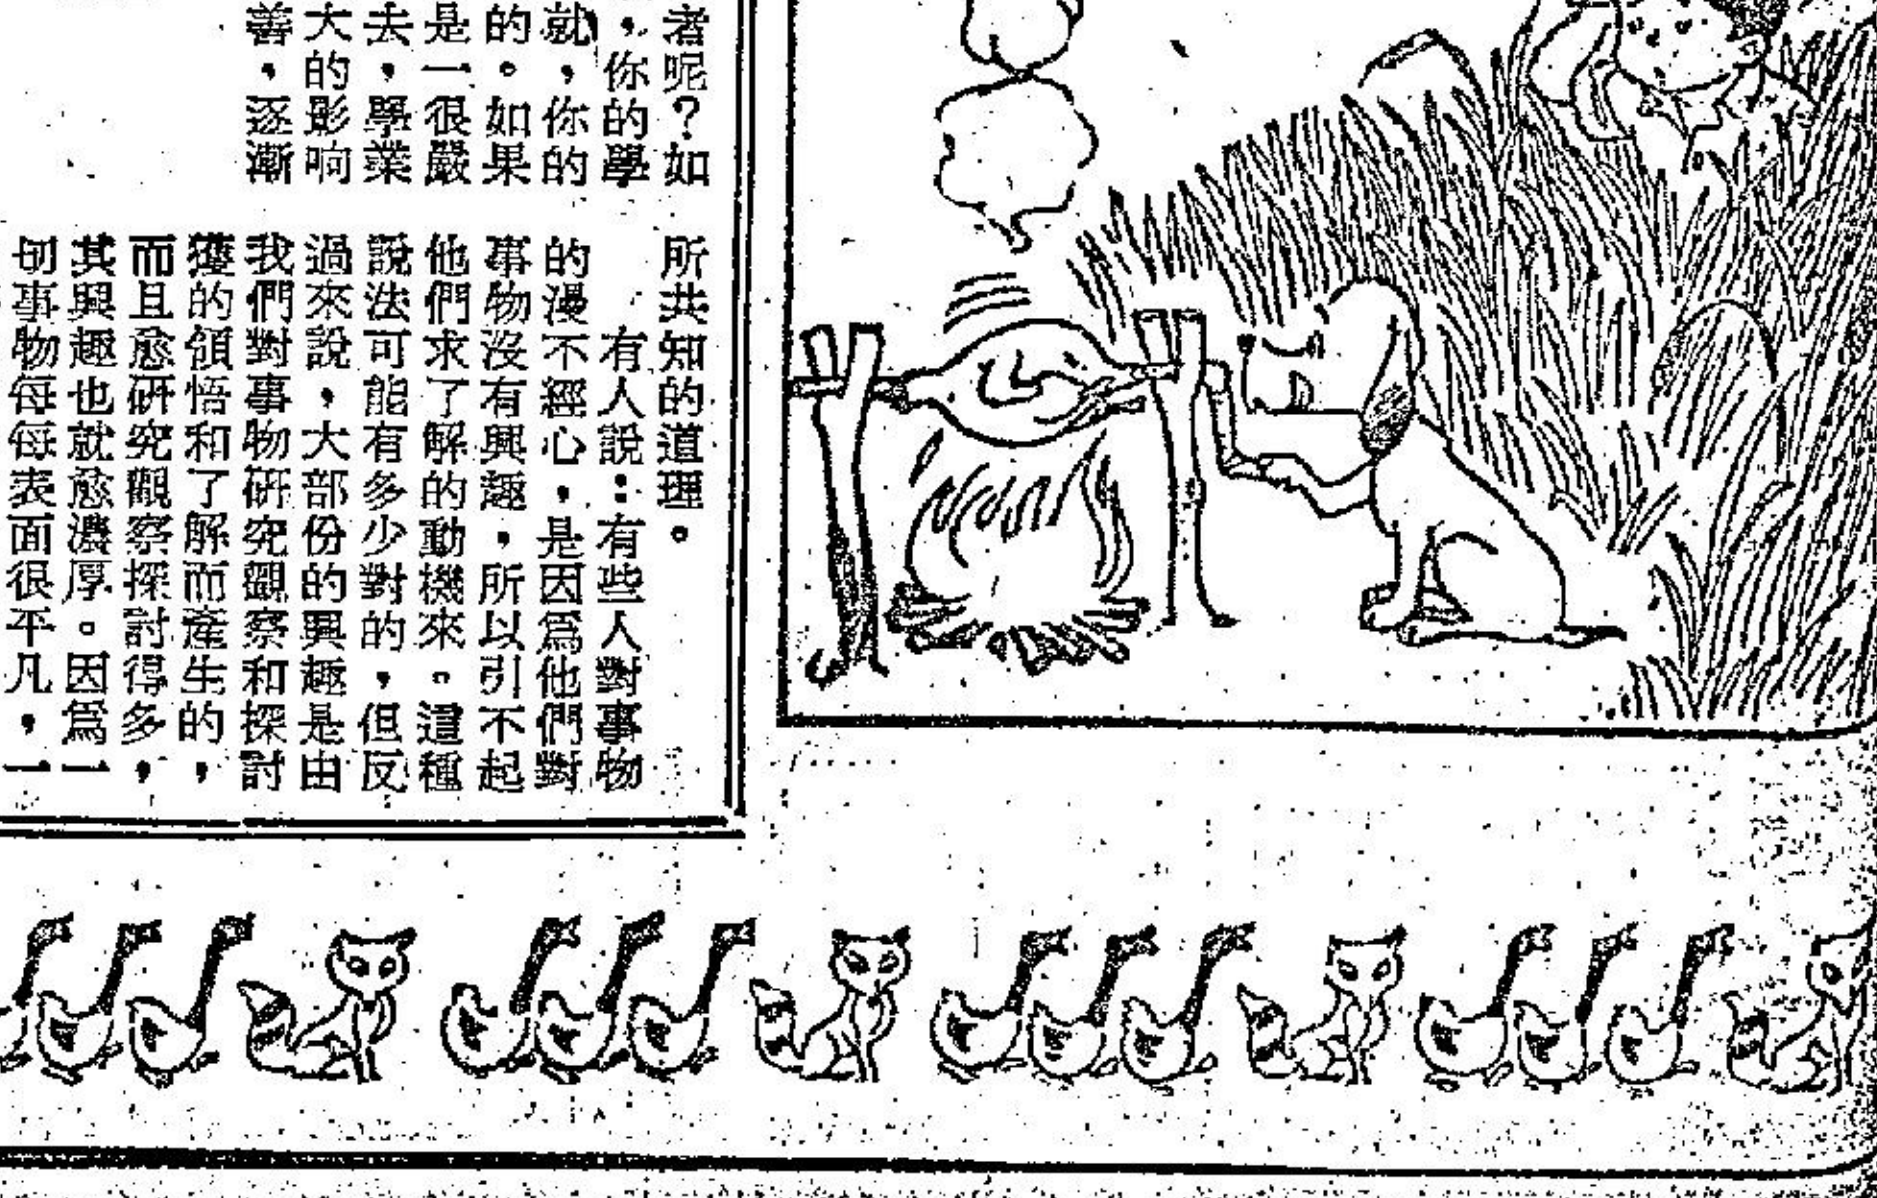 者呢？如
，你的學
就，你的
的。如果
是一很嚴
去，學業
大的影响
善，逐漸
所共知的道理。
有人說：有些人對事物
的漫不經心，是因為他們對
事物沒有興趣，所以引不起
他們求了解的動機來。這種
說法可能有多少對的，但反
過來說，大部份的興趣是由
我們對事物研究觀察和探討
獲的領悟和了解而產生的，
而且愈研究觀察探討得多，
其興趣也就愈濃厚。因為一
切事物每每表面很平凡，一